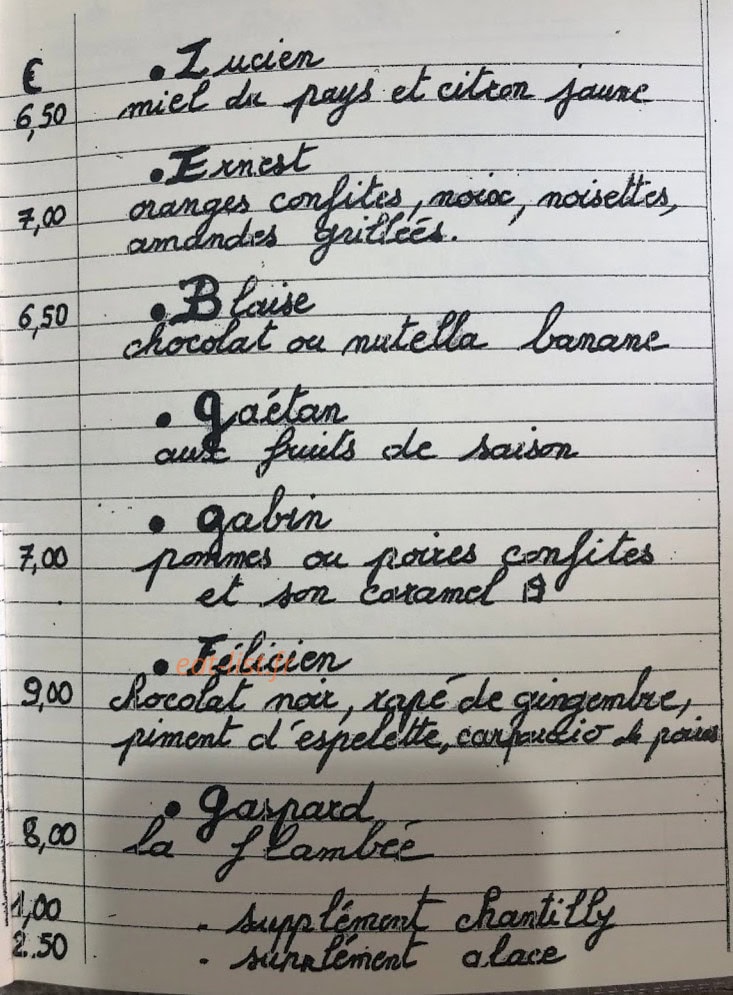 €
• Lucien
6,50 miel du pays et citron jaune
• Ernest
7,00 oranges confites, noix, noisettes,
amandes grilleés.
6,50 • Blaise
chocolat ou nutella banane
• gaétan
aux fruits de saison
• gabin
7,00 pommes ou poires confites
et son caramel
• Félicien
9,00 chocolat noir, rapé de gingembre,
piment d'espelette, carpaccio de poires
• gaspard
8,00 la flambeé
1,00 - supplément chantilly
2.50 - supplément glace